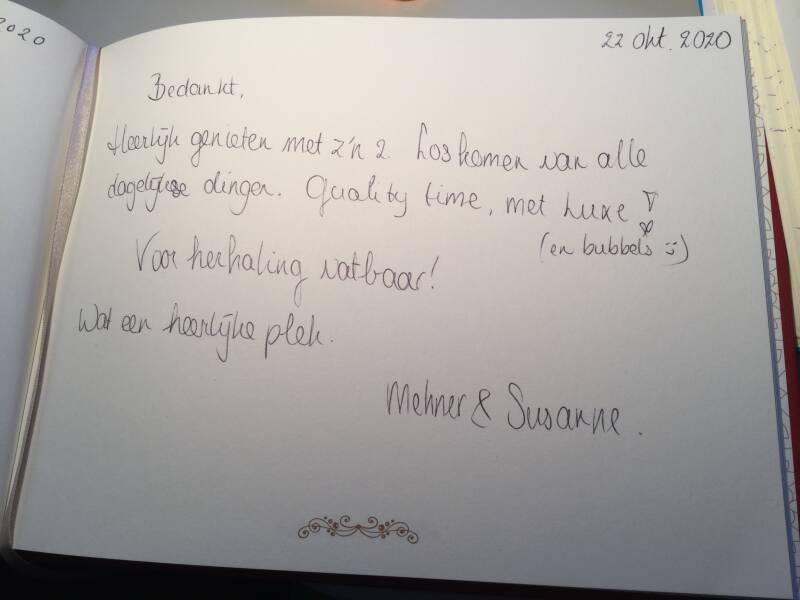 2020
22 okt. 2020
Bedankt,
Heerlijk genieten met z'n 2. Loskomen van alle
dagelijkse dingen. Quality time, met luxe!
(en bubbels :))
Voor herhaling vatbaar!
Wat een heerlijke plek.
& Susanne.